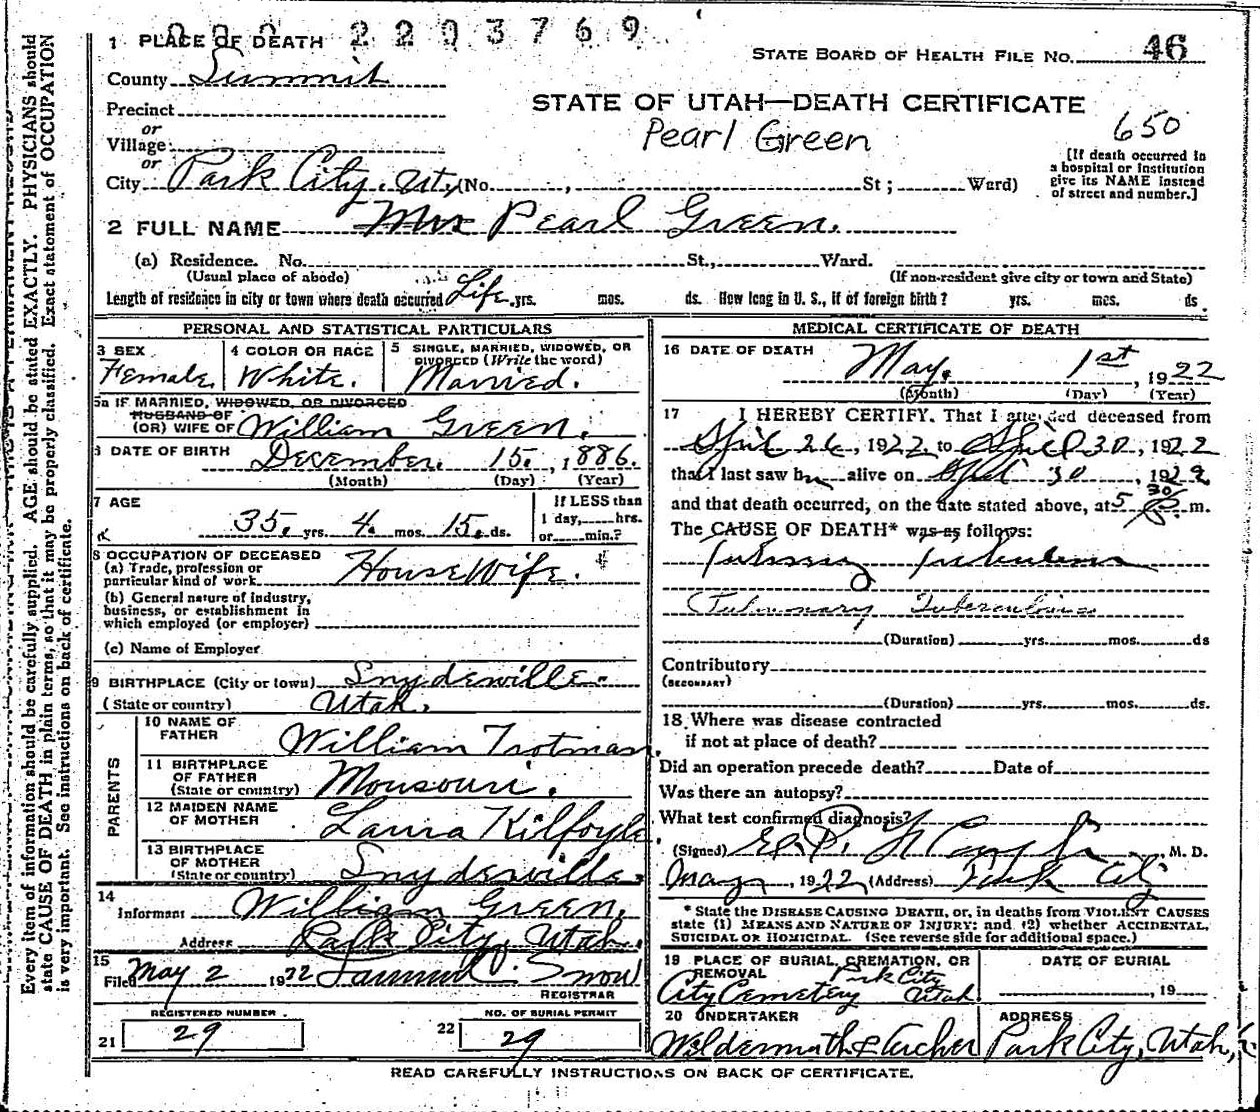 2203769
1 PLACE OF DEATH
STATE BOARD OF HEALTH FILE NO. 46
County Summit
STATE OF UTAH—DEATH CERTIFICATE
Precinct
Pearl Green
650
or
Village
or
City Park City, Ut, (No. , St ; Ward)
[If death occurred in
a hospital or institution
give its NAME instead
of street and number.]
2 FULL NAME Mrs Pearl Green.
(a) Residence. No. St., Ward.
(Usual place of abode) (If non-resident give city or town and State)
Length of residence in city or town where death occurred Life. yrs. mos. ds. How long in U. S., if of foreign birth? yrs. mos. ds.
PERSONAL AND STATISTICAL PARTICULARS
3 SEX
Female.
4 COLOR OR RACE
White.
5 SINGLE, MARRIED, WIDOWED, OR
DIVORCED (Write the word)
Married.
5a IF MARRIED, WIDOWED, OR DIVORCED
HUSBAND OF
(OR) WIFE OF William Green.
6 DATE OF BIRTH December. 15., 1886.
(Month) (Day) (Year)
7 AGE
35. yrs. 4. mos. 15. ds.
If LESS than
1 day, hrs.
or min.?
8 OCCUPATION OF DECEASED
(a) Trade, profession or
particular kind of work HouseWife.
(b) General nature of industry,
business, or establishment in
which employed (or employer)
(c) Name of Employer
9 BIRTHPLACE (City or town) Snyderville.
(State or country) Utah.
PARENTS
10 NAME OF
FATHER William Trotman.
11 BIRTHPLACE
OF FATHER
(State or country) Mousouri.
12 MAIDEN NAME
OF MOTHER Laura Kilfoyle
13 BIRTHPLACE
OF MOTHER
(State or country) Snyderville.
14
Informant William Green.
Address Park City, Utah.
15
Filed May 2 1922 Snow
REGISTRAR
REGISTERED NUMBER
21 29
NO. OF BURIAL PERMIT
22 29
MEDICAL CERTIFICATE OF DEATH
16 DATE OF DEATH May. 1st, 1922
(Month) (Day) (Year)
17 I HEREBY CERTIFY, That I attended deceased from
April 26, 1922 to April 30, 1922
that I last saw h alive on April 30 1922
and that death occurred, on the date stated above, at 5 30 m.
The CAUSE OF DEATH* was as follows:
Pulmonary Tuberculosis
(Duration) yrs. mos. ds
Contributory
(SECONDARY)
(Duration) yrs. mos. ds.
18 Where was disease contracted
if not at place of death?
Did an operation precede death? Date of
Was there an autopsy?
What test confirmed diagnosis?
(Signed) M. D.
May, 1922 (Address) Park City
* State the DISEASE CAUSING DEATH, or, in deaths from VIOLENT CAUSES
state (1) MEANS AND NATURE OF INJURY; and (2) whether ACCIDENTAL,
SUICIDAL OR HOMICIDAL. (See reverse side for additional space.)
19 PLACE OF BURIAL, CREMATION, OR
REMOVAL Park City
City Cemetery Utah
DATE OF BURIAL
, 19
20 UNDERTAKER
Wildermuth & Archer
ADDRESS
Park City, Utah,
READ CAREFULLY INSTRUCTIONS ON BACK OF CERTIFICATE.
Every item of information should be carefully supplied. AGE should be stated EXACTLY. PHYSICIANS should
state CAUSE OF DEATH in plain terms, so that it may be properly classified. Exact statement of OCCUPATION
is very important. See instructions on back of certificate.